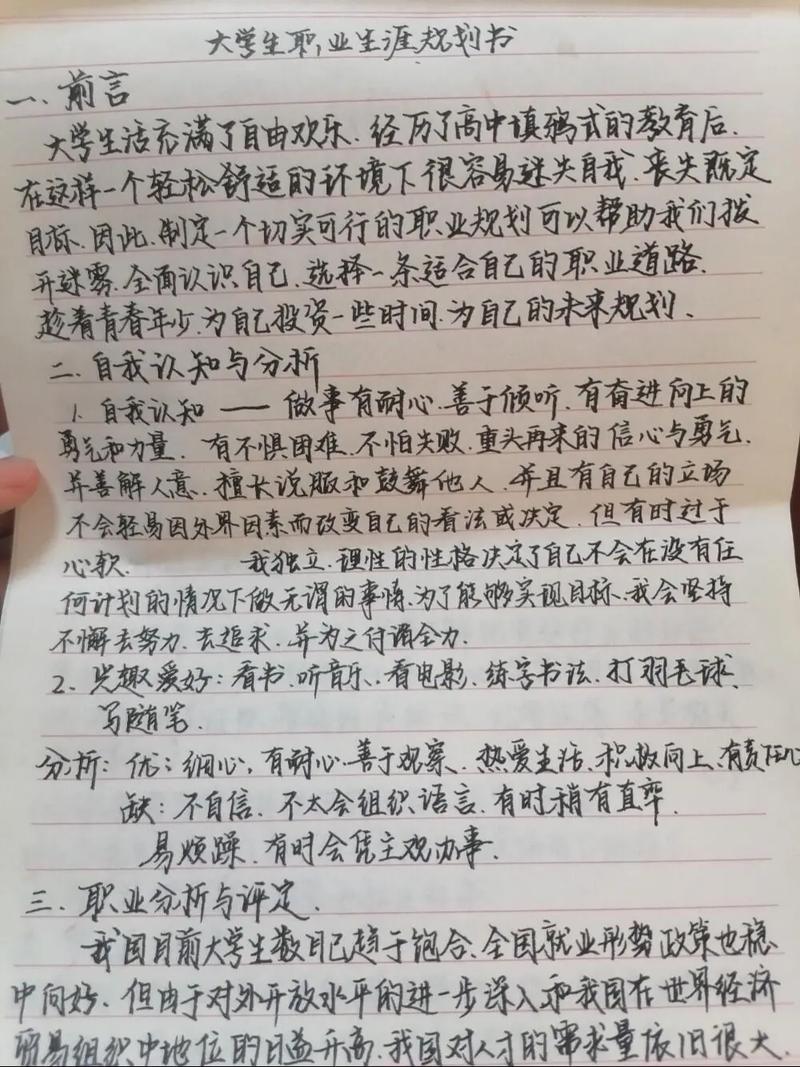 大学生职业生涯规划书
一、前言
大学生活充满了自由欢乐、经历了高中填鸦式的教育后、
在这样一个轻松舒适的环境下很容易迷失自我、丧失既定
目标、因此、制定一个切实可行的职业规划可以帮助我们拨
开迷雾、全面认识自己、选择一条适合自己的职业道路、
趁着青春年少、为自己投资一些时间、为自己的未来规划、
二、自我认知与分析
1、自我认知 —— 做事有耐心、善于倾听、有奋进向上的
勇气和力量、有不惧困难、不怕失败、重头再来的信心与勇气、
并善解人意、擅长说服和鼓舞他人、并且有自己的立场
不会轻易因外界因素而改变自己的看法或决定、但有时过于
心软、 我独立、理性的性格决定了自己不会在没有任
何计划的情况下做无谓的事情、为了能够实现目标、我会坚持
不懈去努力、去追求、并为之付诸全力、
2、兴趣爱好：看书、听音乐、看电影、练字书法、打羽毛球、
写随笔、
分析：优：细心、有耐心、善于观察、热爱生活、积极向上、有责任心
缺：不自信、不太会组织语言、有时稍有直率、
易烦躁、有时会凭主观办事、
三、职业分析与评定、
我国目前大学生数目已趋于饱合、全国就业形势政策也稳
中向好、但由于对外开放水平的进一步深入和我国在世界经济
贸易组织中地位的日益升高、我国对人才的需求量依旧很大、